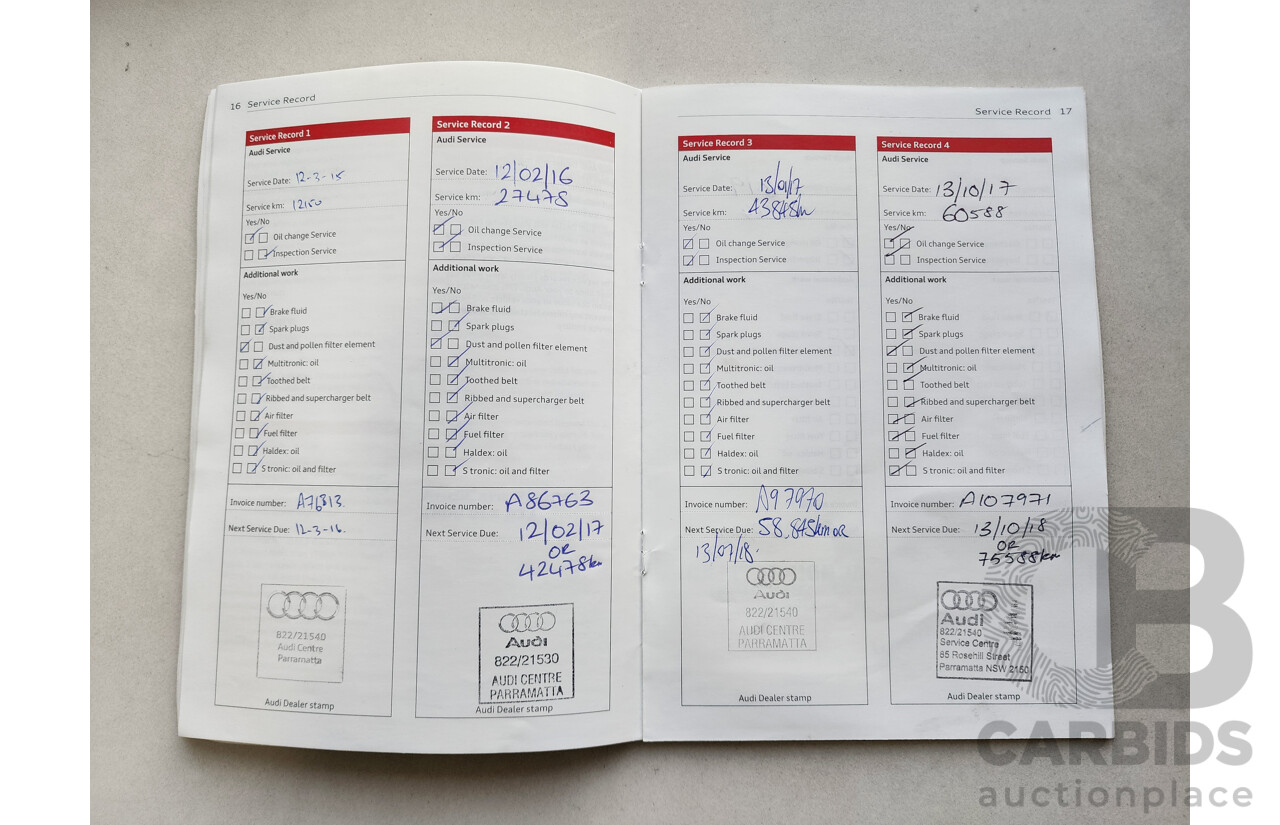 16 Service Record
Service Record 1
Audi Service
Service Date: 12-3-15
Service km: 12150
Yes/No
Oil change Service
Inspection Service
Additional work
Yes/No
Brake fluid
Spark plugs
Dust and pollen filter element
Multitronic: oil
Toothed belt
Ribbed and supercharger belt
Air filter
Fuel filter
Haldex: oil
S tronic: oil and filter
Invoice number: A76813.
Next Service Due: 12-3-16.
822/21540
Audi Centre
Parramatta
Audi Dealer stamp
Service Record 2
Audi Service
Service Date: 12/02/16
Service km: 27478
Yes/No
Oil change Service
Inspection Service
Additional work
Yes/No
Brake fluid
Spark plugs
Dust and pollen filter element
Multitronic: oil
Toothed belt
Ribbed and supercharger belt
Air filter
Fuel filter
Haldex: oil
S tronic: oil and filter
Invoice number: A86763
Next Service Due: 12/02/17
OR
42478km
Audi
822/21530
AUDI CENTRE
PARRAMATTA
Audi Dealer stamp
Service Record 17
Service Record 3
Audi Service
Service Date:
Service km: 43845km
Yes/No
Oil change Service
Inspection Service
Additional work
Yes/No
Brake fluid
Spark plugs
Dust and pollen filter element
Multitronic: oil
Toothed belt
Ribbed and supercharger belt
Air filter
Fuel filter
Haldex: oil
S tronic: oil and filter
Invoice number: A97970
Next Service Due: 58,845km OR
Audi
822/21540
AUDI CENTRE
PARRAMATTA
Audi Dealer stamp
Service Record 4
Audi Service
Service Date: 13/10/17
Service km: 60588
Yes/No
Oil change Service
Inspection Service
Additional work
Yes/No
Brake fluid
Spark plugs
Dust and pollen filter element
Multitronic: oil
Toothed belt
Ribbed and supercharger belt
Air filter
Fuel filter
Haldex: oil
S tronic: oil and filter
Invoice number: A107971
Next Service Due: 13/10/18
OR
75588km
Audi
822/21540
Service Centre
85 Rosehill Street
Parramatta NSW 2150
Audi Dealer stamp
CARBIDS
auctionplace